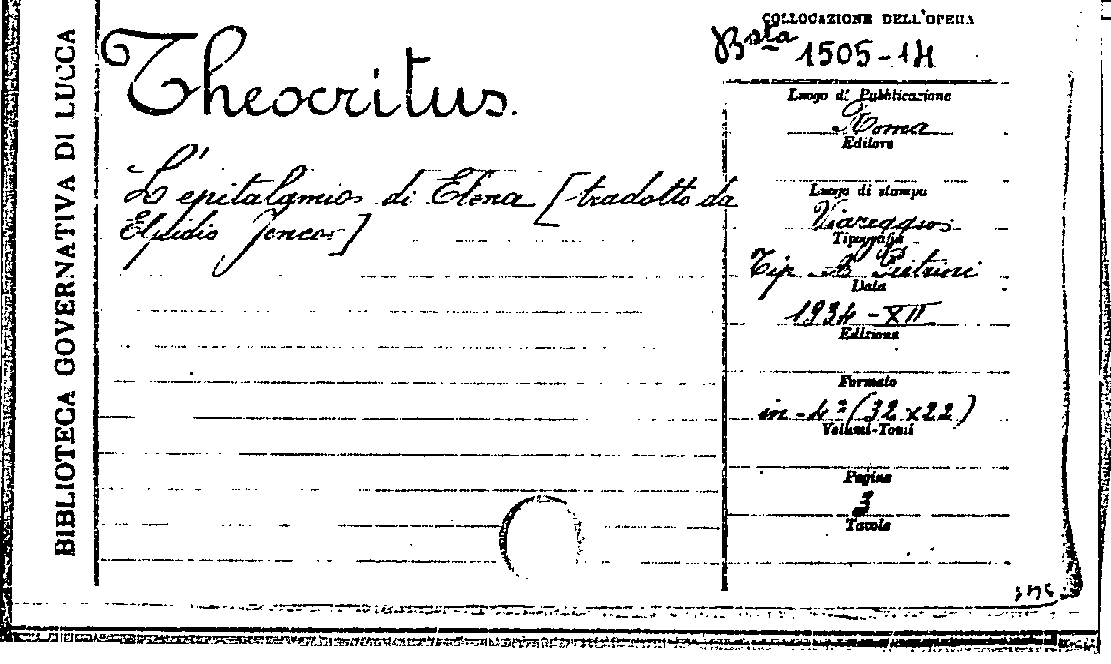 BIBLIOTECA GOVERNATIVA DI LUCCA
Theocritus.
L'epitalamio di Elena [tradotto da
Elpidio Jenco]
COLLOCAZIONE DELL'OPERA
Bsta 1505-14
Luogo di Pubblicazione
Roma
Editore
Luogo di stampa
Viareggio
Tipografia
Tip. A. Pistrini
Data
1934-XII
Edizione
Formato
in-4º (32x22)
Volumi-Tomi
Pagine
3
Tavole